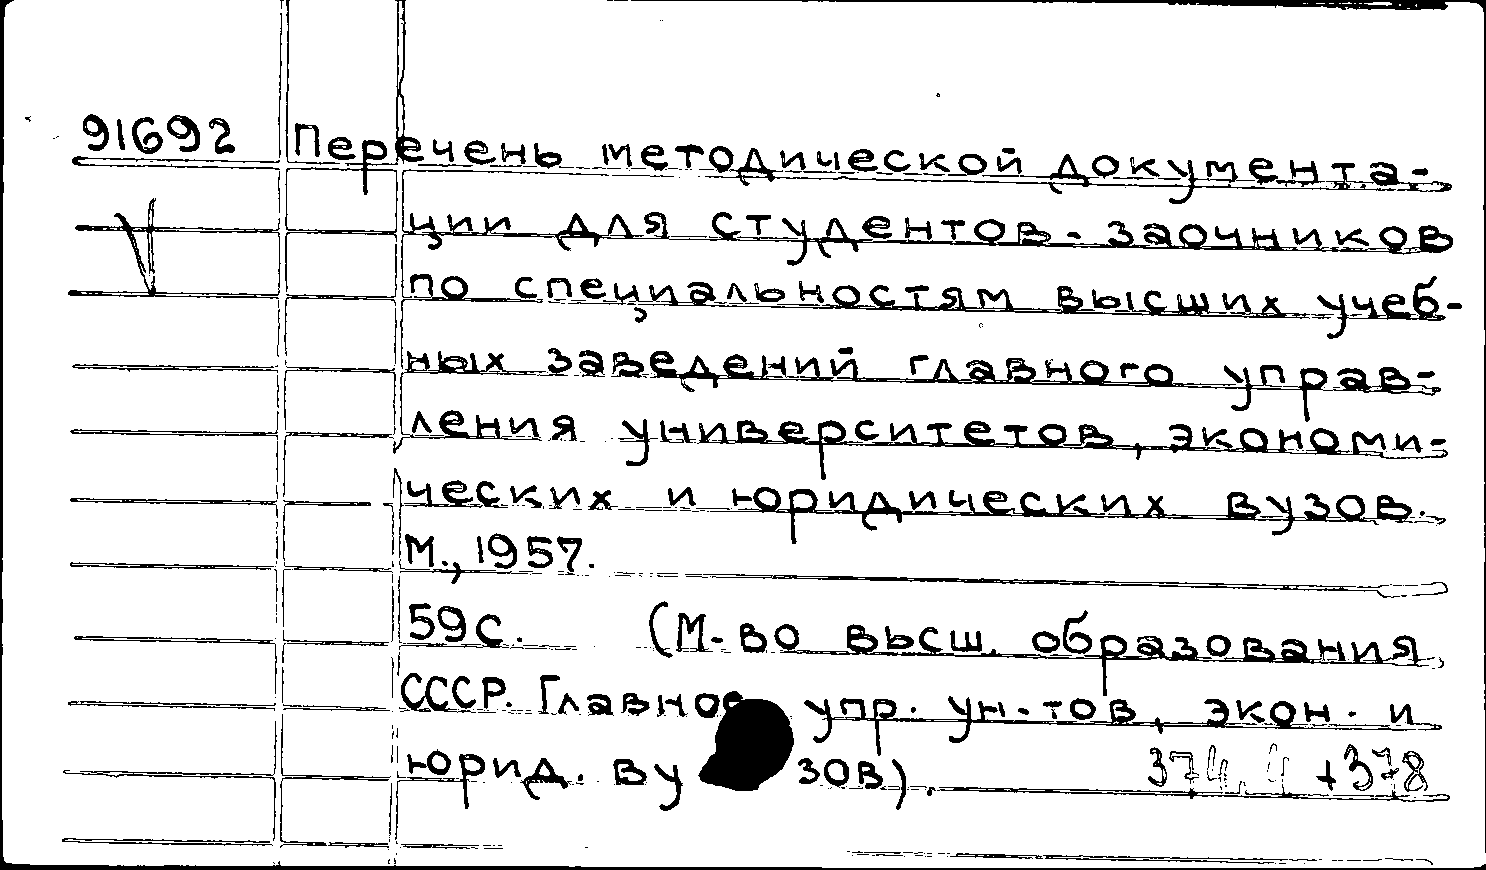 91692 Перечень методической документа-
ции для студентов-заочников
по специальностям высших учеб-
ных заведений главного управ-
ления университетов, экономи-
ческих и юридических вузов.
М., 1957.
59с. (М-во высш. образования
СССР. Главное упр. ун-тов, экон. и
юрид. ву зов).
374.4 + 378